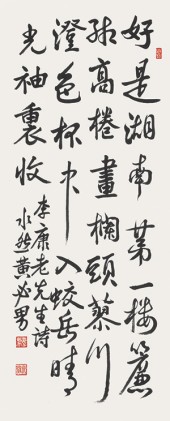 好是湖南第一楼簾
疏高捲畫欄頭蓼川
澄色杯中入蛟岳晴
光袖裏收
李康老先生詩
水然黄必男